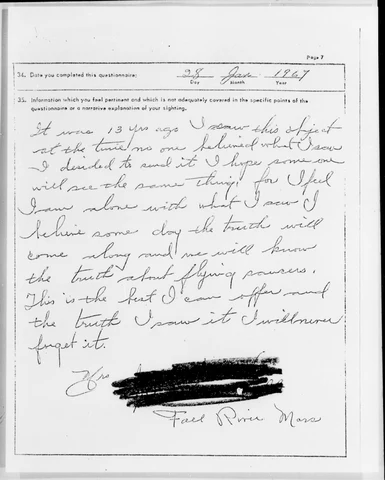 Page 7
34. Date you completed this questionnaire: 28 Jan 1967
Day Month Year
35. Information which you feel pertinent and which is not adequately covered in the specific points of the
questionnaire or a narrative explanation of your sighting.
It was 13 yrs ago I saw this object
at the time no one believed what I saw
I decided to send it I hope some one
will see the same thing, for I feel
I am alone with what I saw I
believe some day the truth will
come along and we will know
the truth about flying saucers.
This is the best I can offer and
the truth I saw it I will never
forget it.
Mrs
Fall River Mass